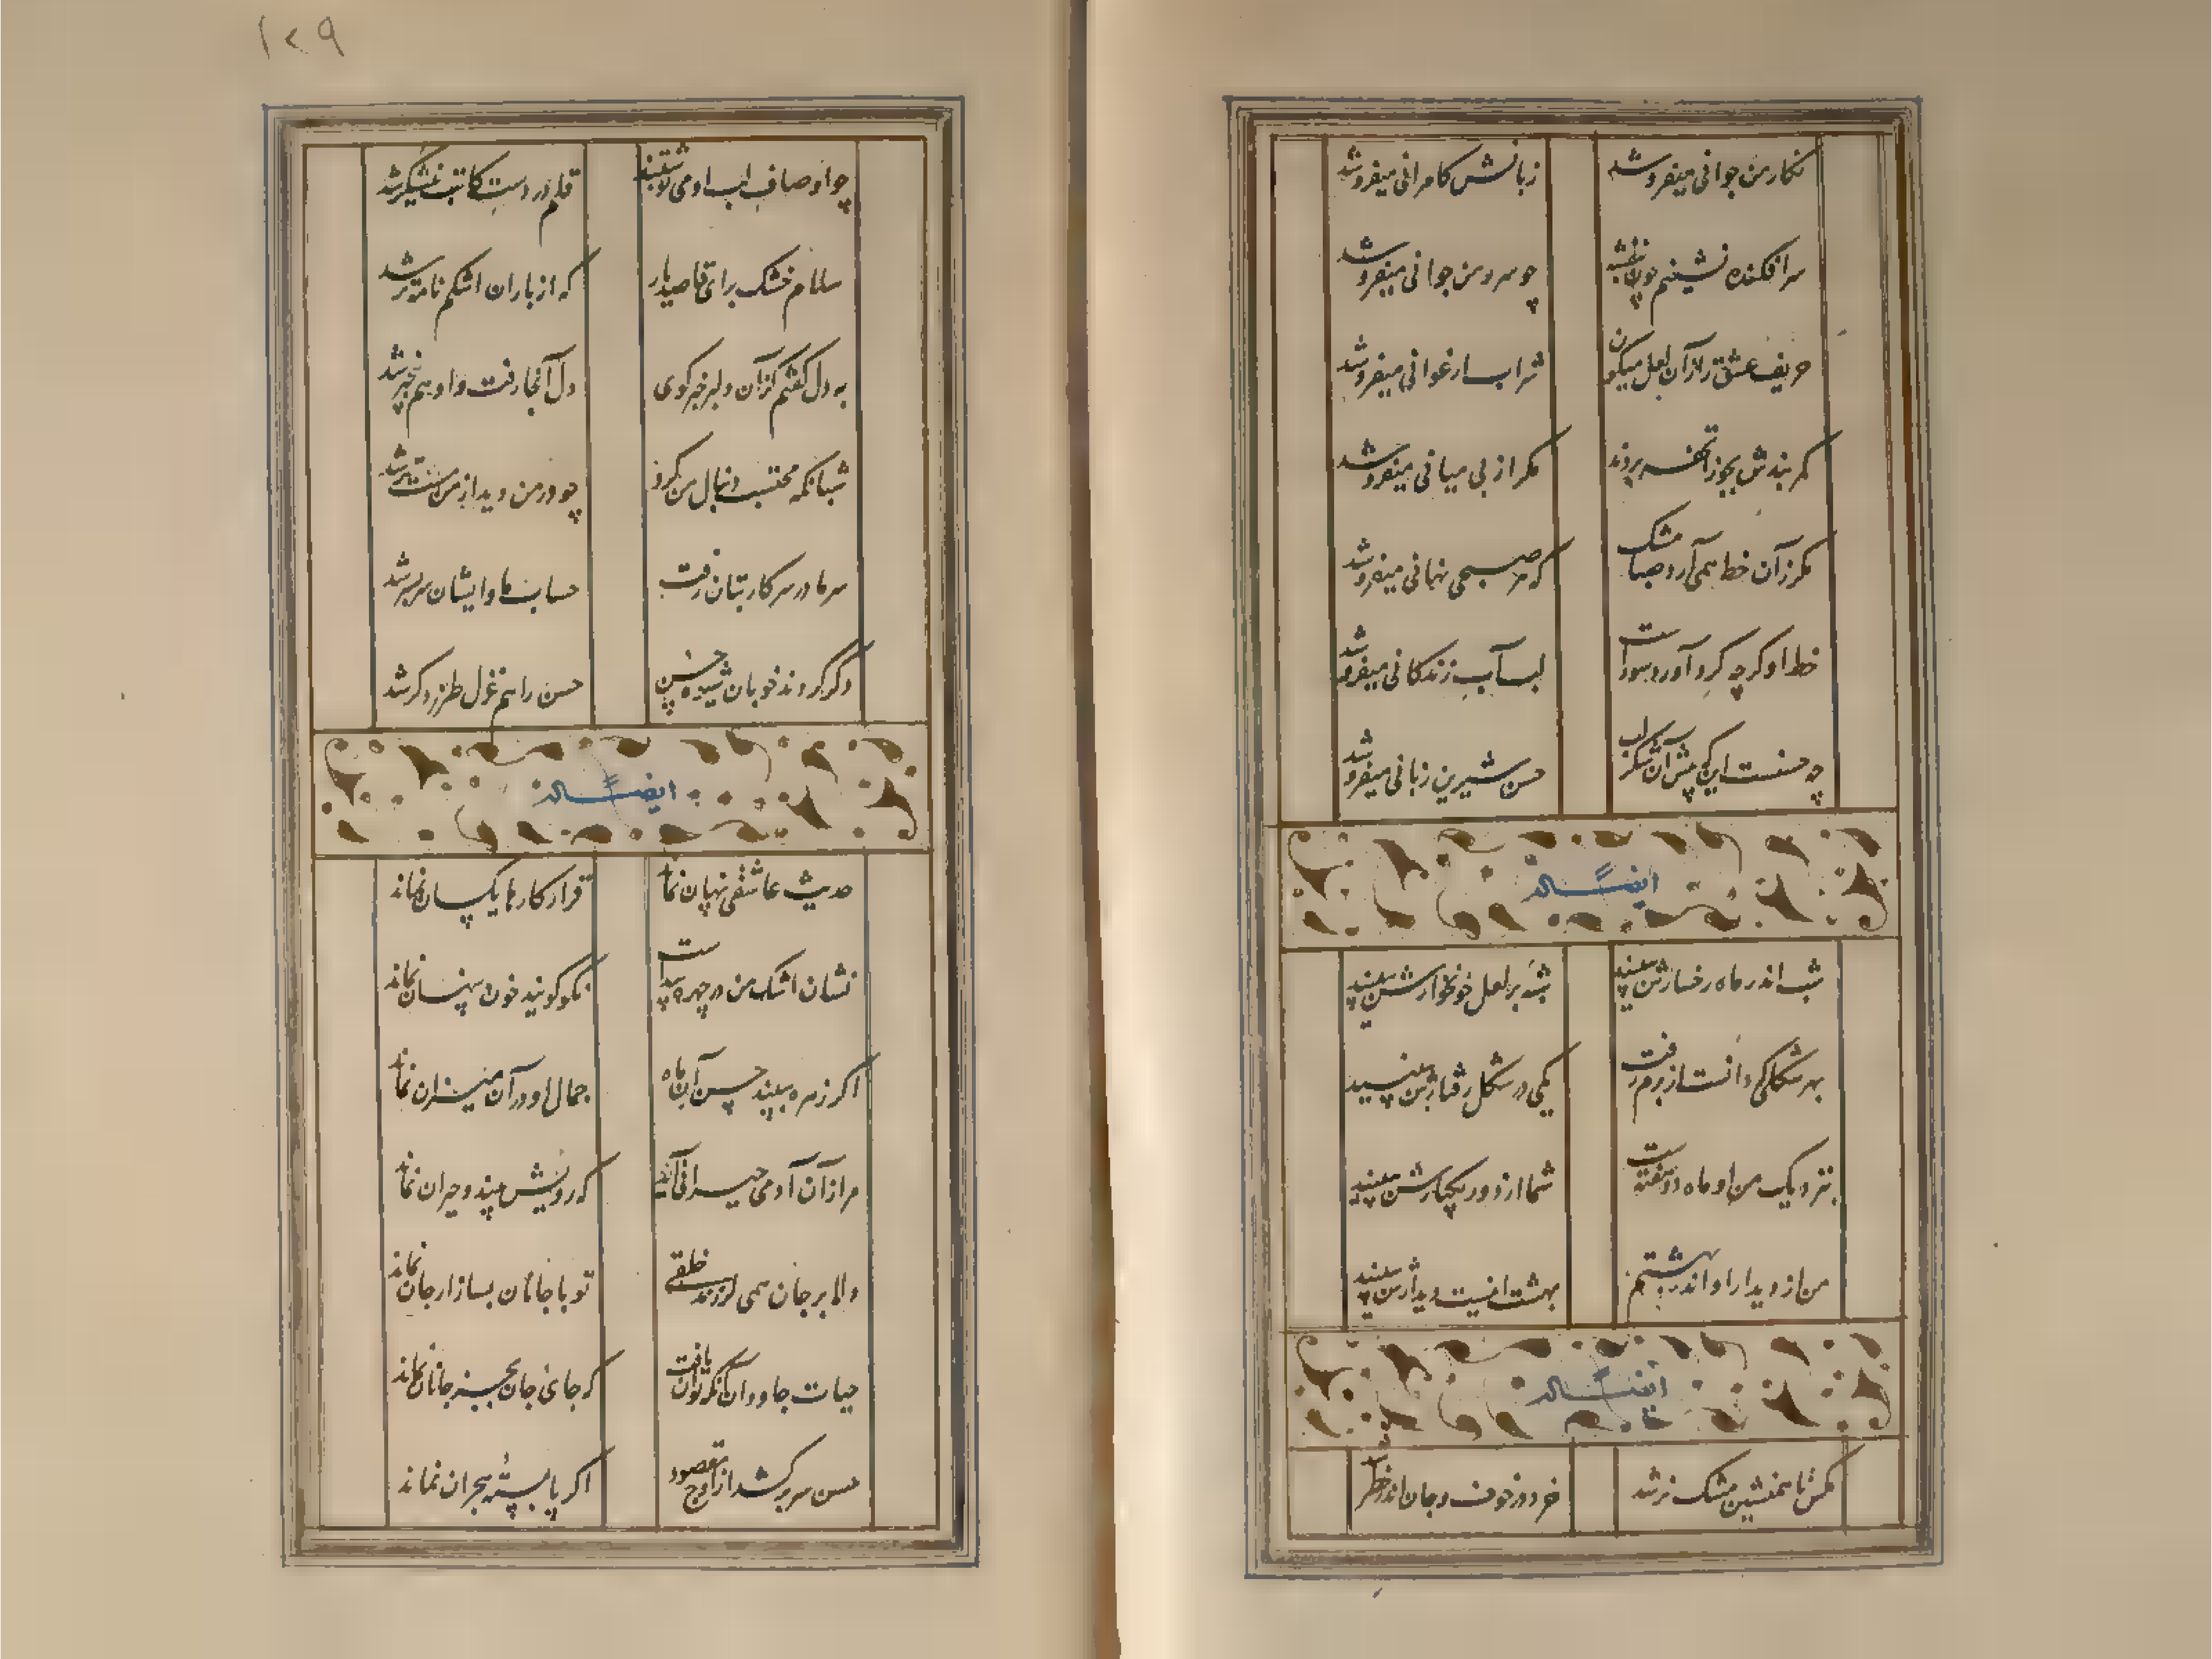 ۱۲۹
نکار من جوانی میفروشد
زبانش کامرانی میفروشد
سرافکنده نشینم چون بنفشه
چو سرو من جوانی میفروشد
حریف عشق را زان لعل میکون
شراب ارغوانی میفروشد
کمربندش بجوزا تحفه بردند
مکر از بی میانی میفروشد
مکر زآن خط همی آرد صبا مشک
که هر صبحی نهانی میفروشد
خط او کرچه کرد آورد سوداست
لبش آب زندکانی میفروشد
چه حسنست این که پیش آن شکر لب
حسن شیرین زبانی میفروشد
ایضاً له
شب اندر ماه رخسارش ببینید
شبه بر لعل خونخوارش ببینید
بهر شکلی که دانست از برم رفت
یکی در شکل رفتارش ببینید
بنزدیک من او ماه دو هفته است
شما از دور یکبارش ببینید
من از دیدار او اندر بهشتم
بهشت اینست دیدارش ببینید
ایضاً له
مکس تا همنشین مشک تر شد
خرد در خوف و جان اندر خطر شد
چو اوصاف لب او می نوشتند
قلم در دست کاتب نیشکر شد
سلام خشک برای قاصد یار
که از باران اشکم نامه تر شد
به دل کفتم کزان دلبر خبر کوی
دل آنجا رفت و او هم بیخبر شد
شبانکه محتسب دنبال من کرد
چو در من دید از من مست تر شد
سر ما در سر کار بتان رفت
حساب ما و ایشان سربسر شد
دکر کردند خوبان شیوه حسن
حسن را هم غزل طرز دکر شد
ایضاً له
حدیث عاشقی پنهان نماند
قرار کارها یکسان نماند
نشان اشک من در چهره پیداست
نکو کویند خون پنهان نماند
اکر زهره ببیند حسن آن ماه
جمال او در آن میزان نماند
مرا زان آدمی حیرانی آید
که رویش بیند و حیران نماند
دلا بر جان همی لرزند خلقی
تو با جانان بساز ار جان نماند
حیات جاودان آنکه توان یافت
که جای جان بجز جانان نماند
حسن سر برکشد از اوج مقصود
اکر پا بستهٔ هجران نماند